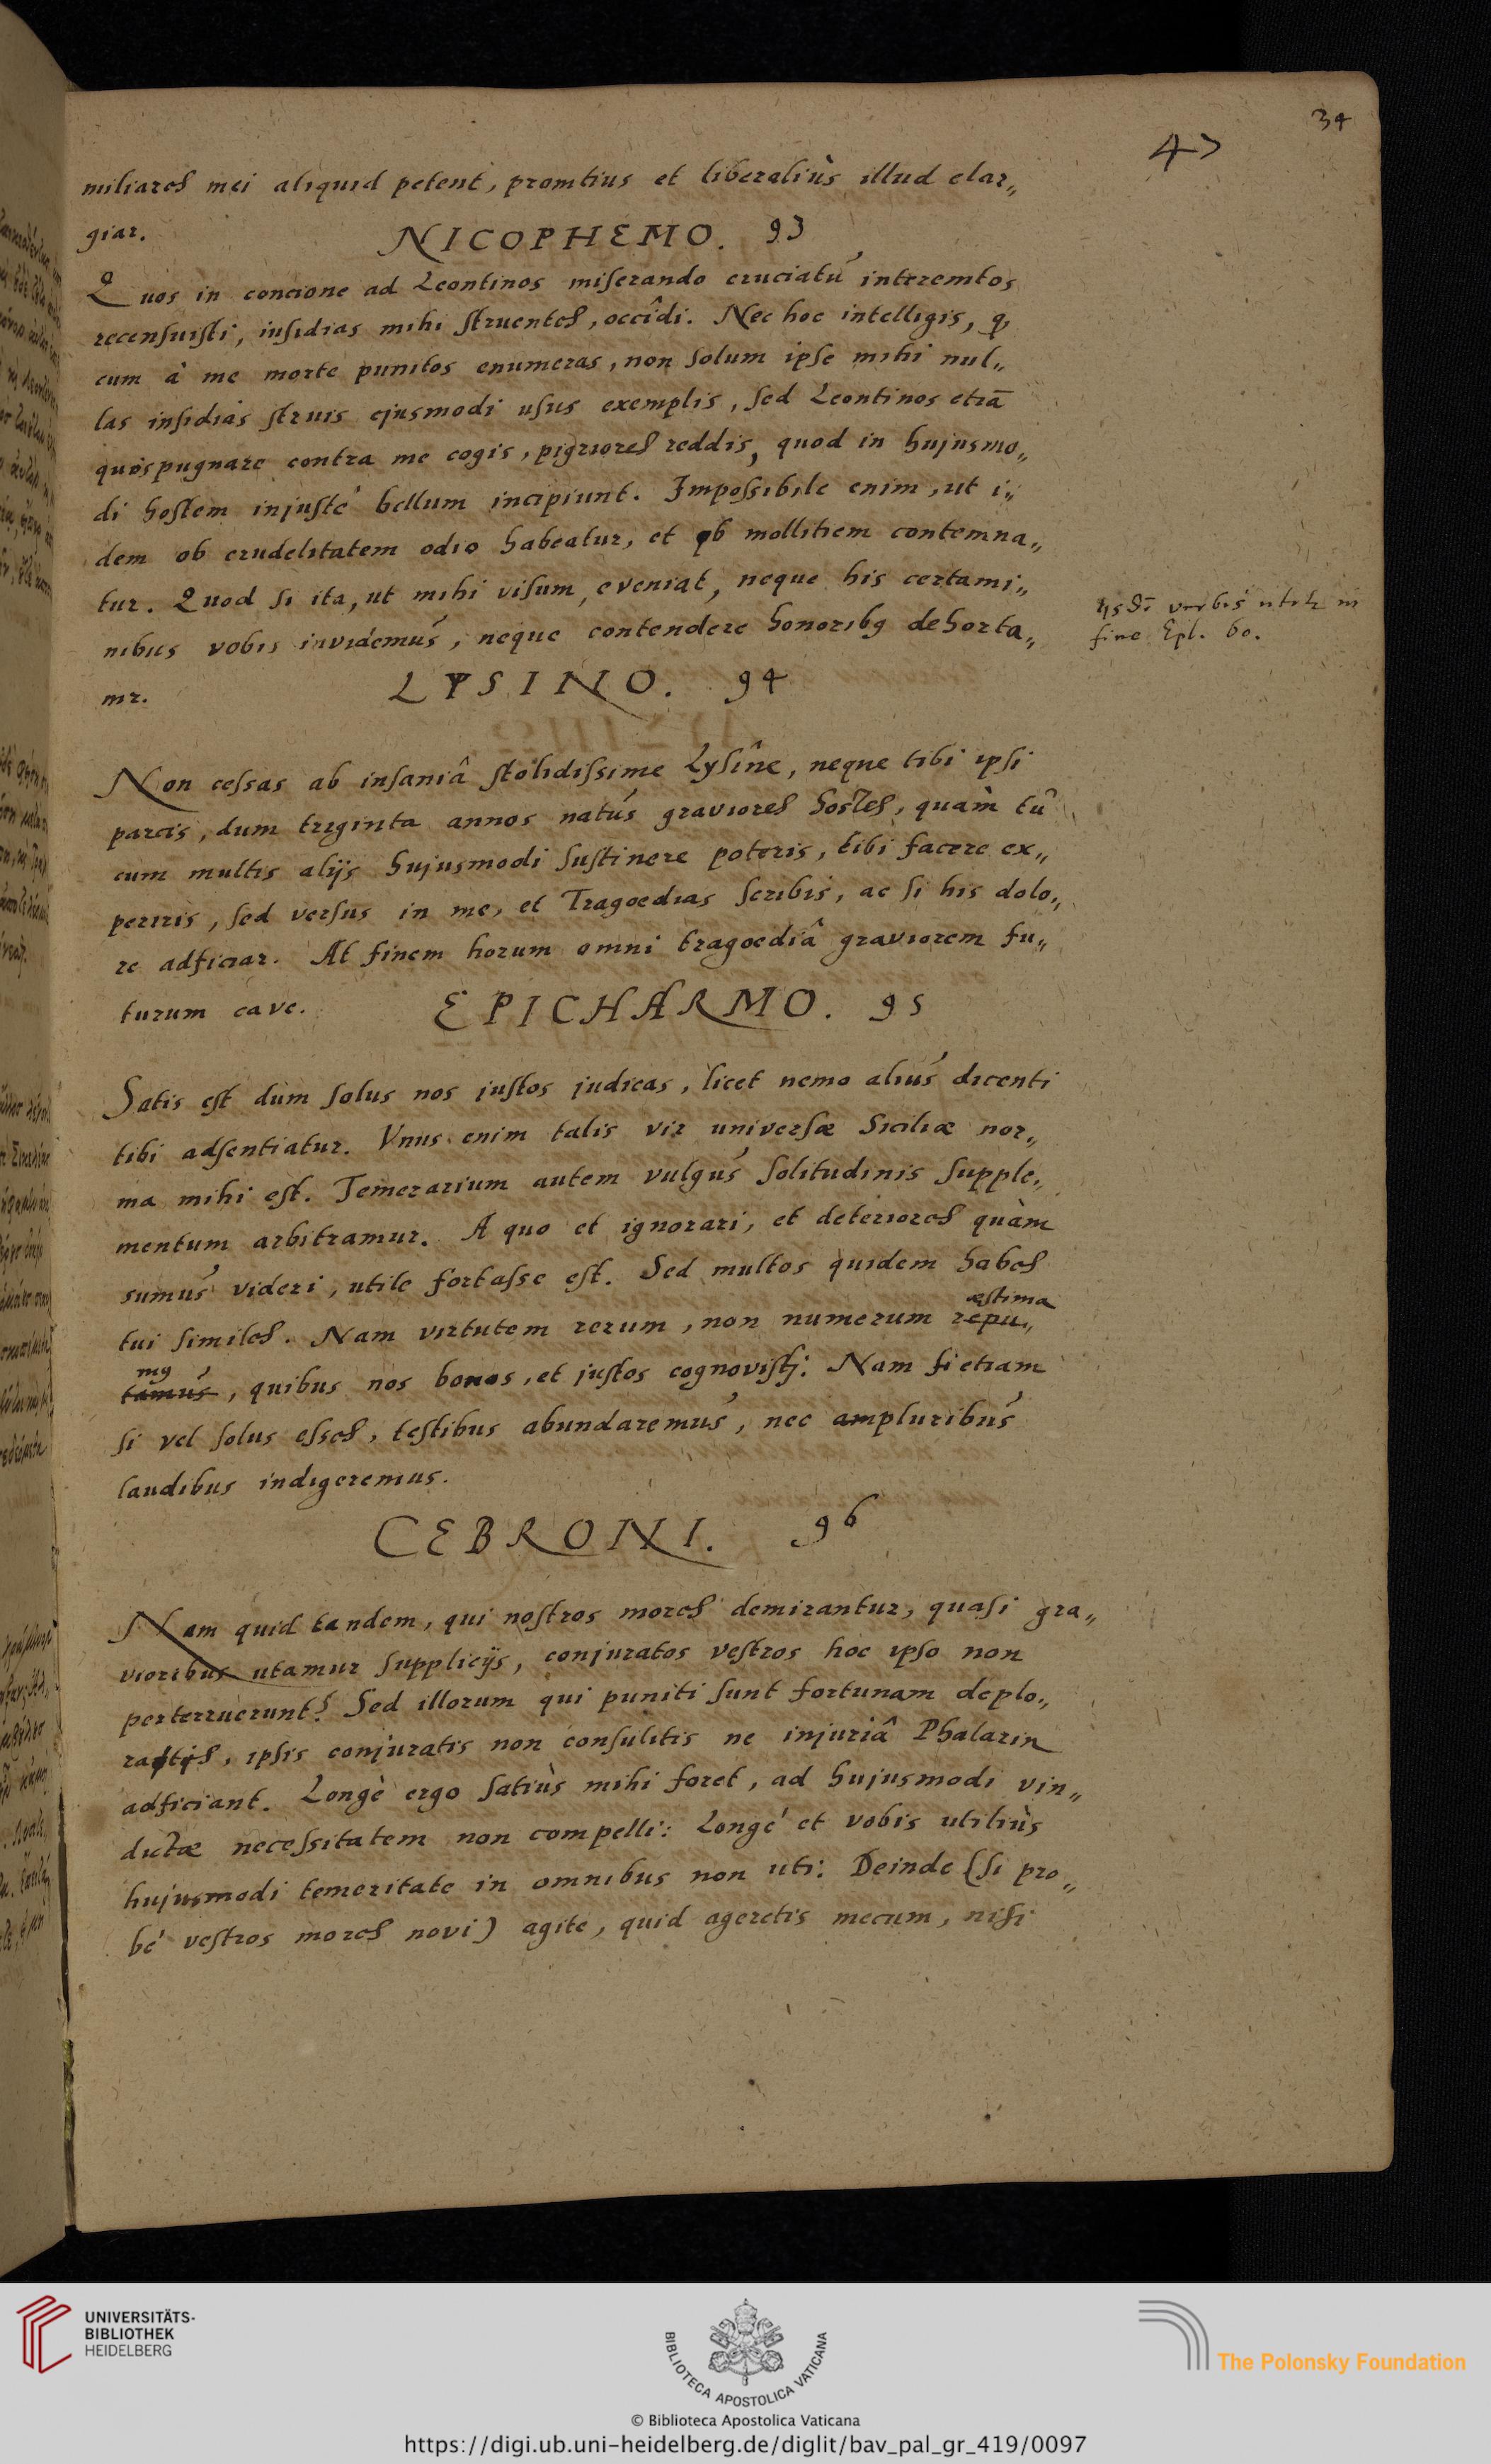 34
47
miliares mei aliquid petent, promtius et liberaliùs illud elar„
giar.
NICOPHEMO. 93
Quos in concione ad Leontinos miserando cruciatu interemtos
recensuisti, insidias mihi struentes, occîdi. Nec hoc intelligis, q,
cum à me morte punitos enumeras, non solum ipse mihi nul„
las insidias struis ejusmodi usus exemplis, sed Leontinos etiā
quos pugnare contra me cogis, pigriores reddis, quod in hujusmo„
di hostem injustè bellum incipiunt. Impossibile enim, ut i„
dem ob crudelitatem odio habeatur, et ob mollitiem contemna„
tur. Quod si ita, ut mihi visum, eveniat, neque his certami„
nibus vobis invidemus, neque contendere honoribꝯ dehorta„
mr.
verbis utitr in
fine Epl. 60.
LYSINO. 94
Non cessas ab insaniâ stolidissime Lysîne, neque tibi ipsi
parcis, dum triginta annos natus graviores hostes, quàm tu
cum multis alijs hujusmodi sustinere poteris, tibi facere ex„
periris, sed versus in me, et Tragoedias scribis, ac si his dolo„
re adficiar. At finem horum omni tragoediâ graviorem fu„
turum cave.
EPICHARMO. 95
Satis est dum solus nos justos judicas, licet nemo alius dicenti
tibi adsentiatur. Vnus enim talis vir universæ Siciliæ nor„
ma mihi est. Temerarium autem vulgus solitudinis supple„
mentum arbitramur. A quo et ignorari, et deteriores quàm
sumus videri, utile fortasse est. Sed multos quidem habes
æstima
tui similes. Nam virtutem rerum, non numerum repu„
mꝯ
tamus, quibus nos bonos, et justos cognovisti: Nam si etiam
si vel solus esses, testibus abundaremus, nec ampluribus
laudibus indigeremus.
CEBRONI. 96
Nam quid tandem, qui nostros mores demirantur, quasi gra„
vioribus utamur supplicijs, conjuratos vestros hoc ipso non
perterruerunt? Sed illorum qui puniti sunt fortunam deplo„
ratis, ipsis conjuratis non consulitis ne injuriâ Phalarin
adficiant. Longè ergo satiùs mihi foret, ad hujusmodi vin„
dictæ necessitatem non compelli: Longè et vobis utiliùs
hujusmodi temeritate in omnibus non uti: Deinde (si pro„
bè vestros mores novi) agite, quid ageretis mecum, nisi
UNIVERSITÄTS-
BIBLIOTHEK
HEIDELBERG
BIBLIOTECA APOSTOLICA VATICANA
The Polonsky Foundation
© Biblioteca Apostolica Vaticana
https://digi.ub.uni-heidelberg.de/diglit/bav_pal_gr_419/0097